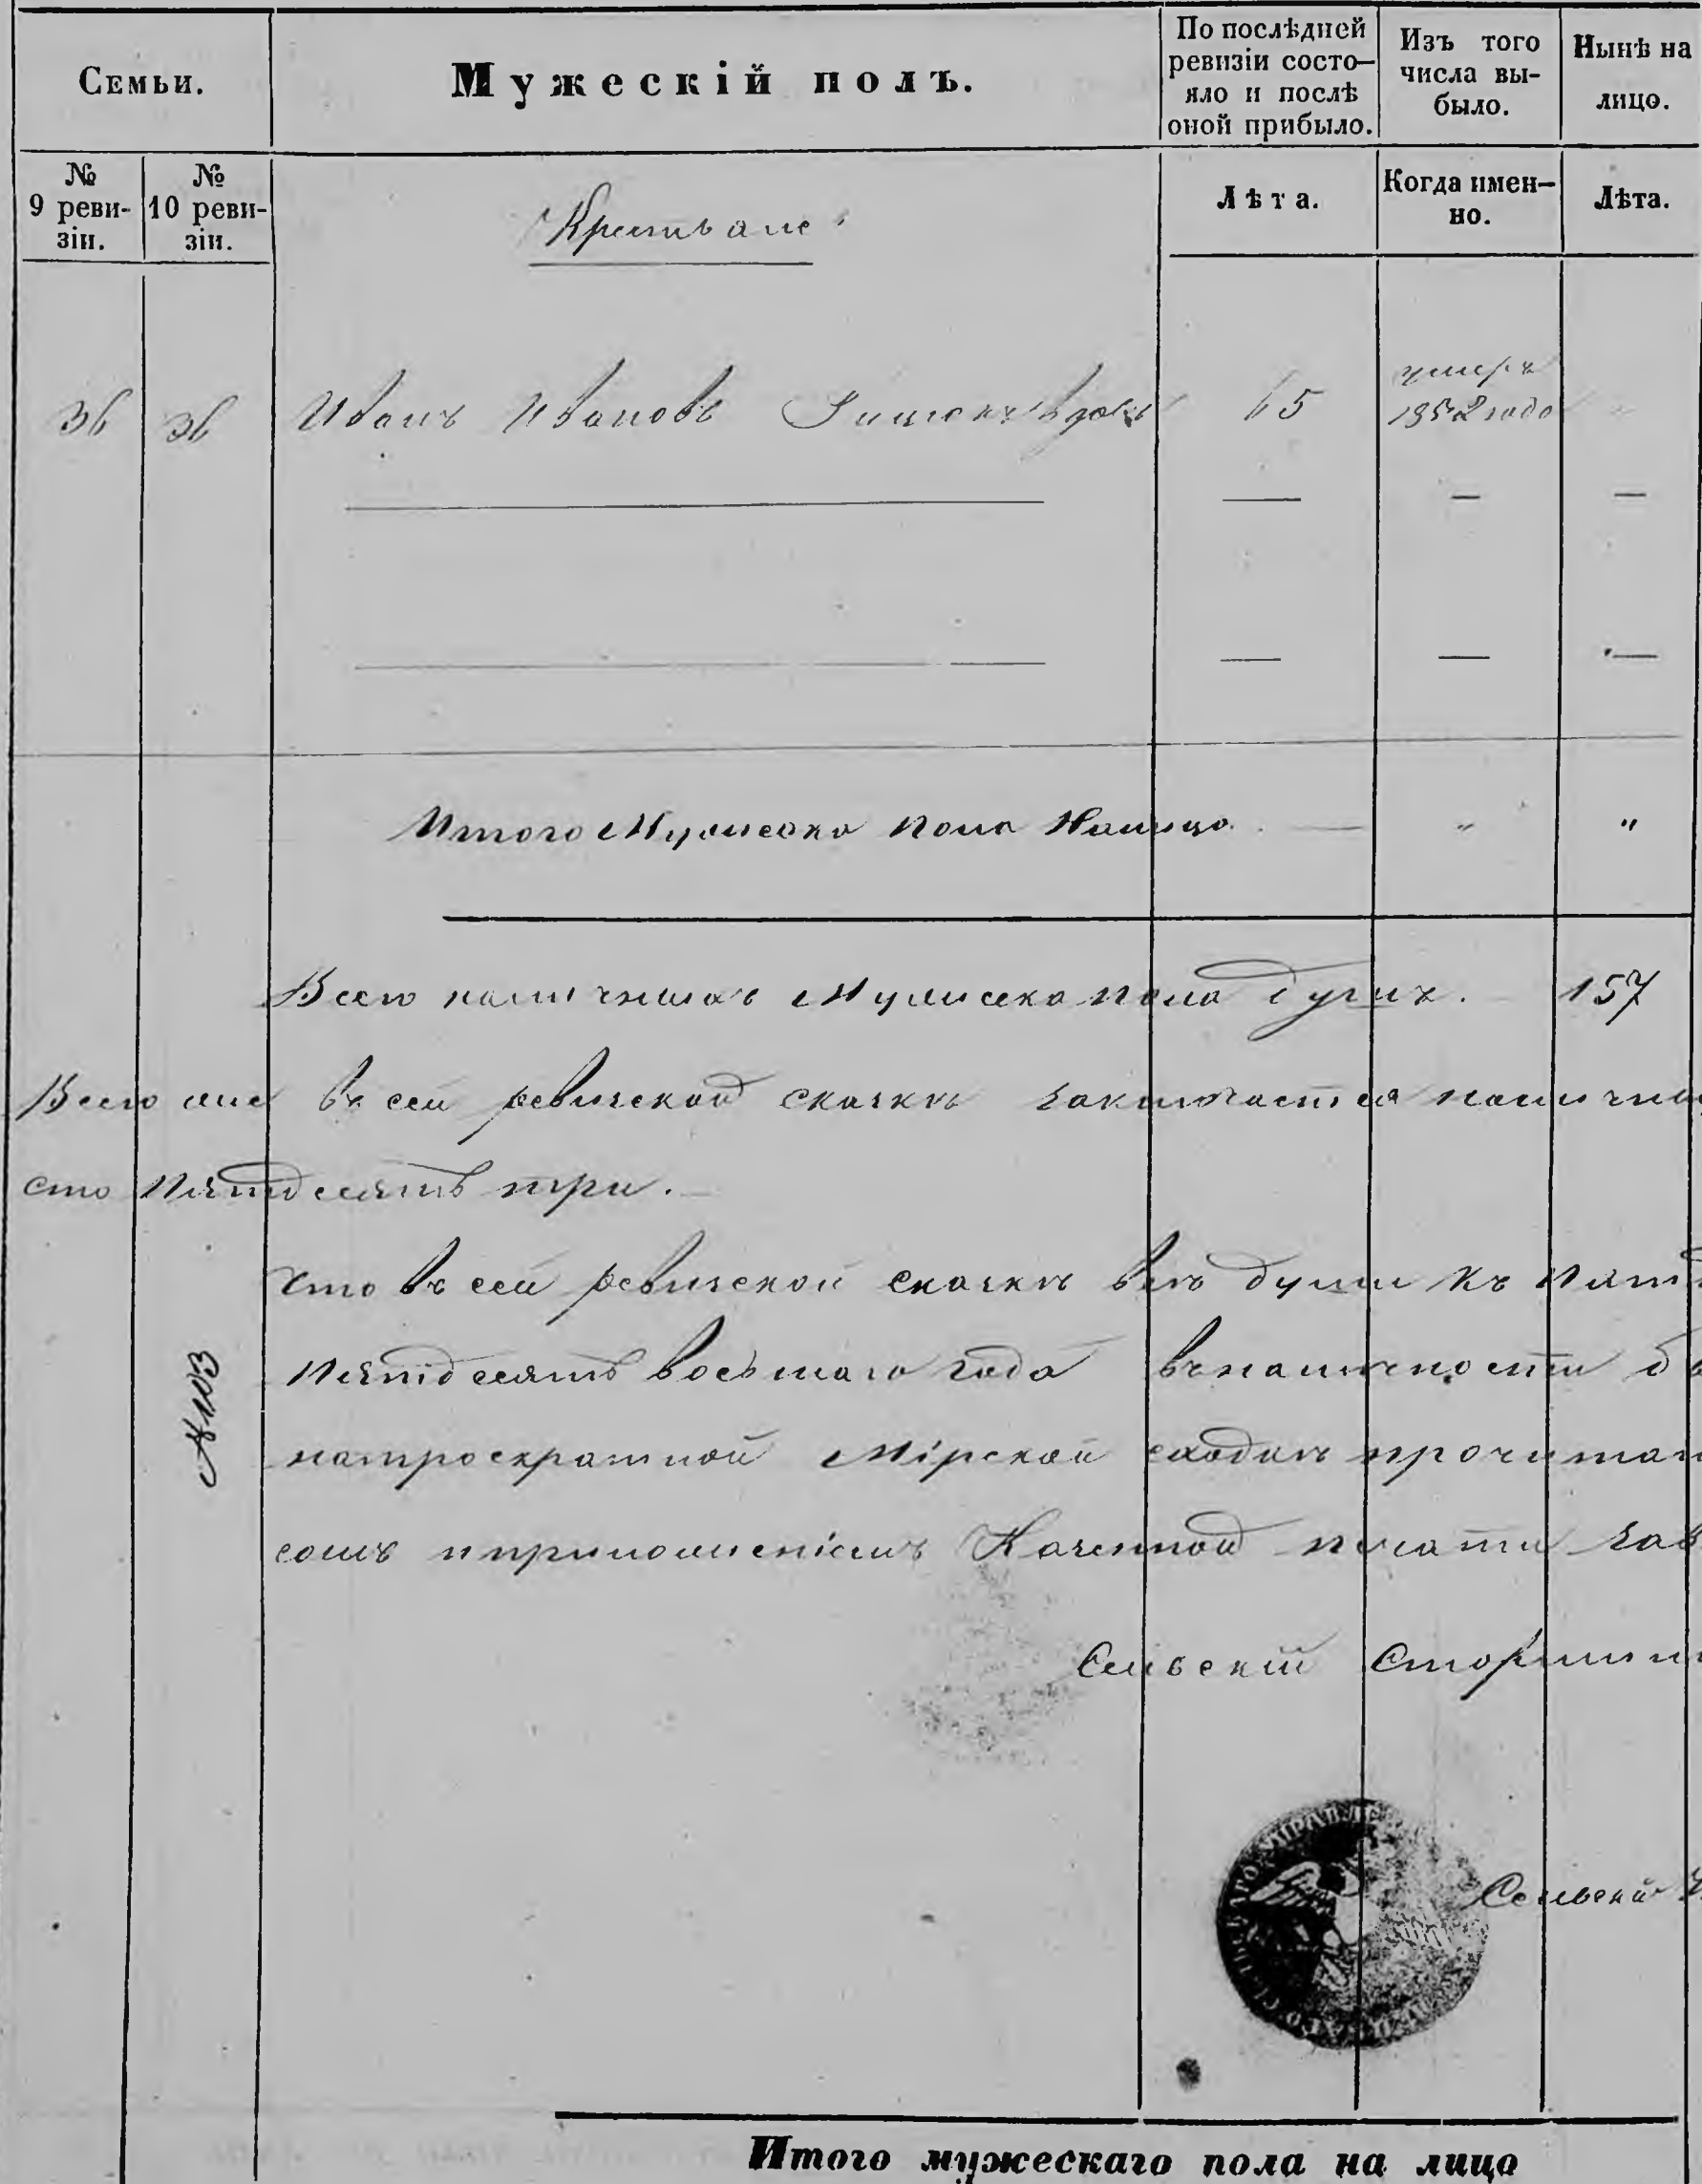 Семьи. Мужескій полъ. По послѣдней ревизіи состо-яло и послѣ оной прибыло. Изъ того числа вы-было. Нынѣ на лицо.
№ 9 реви-зіи. № 10 реви-зіи. Крестьяне Лѣта. Когда имен-но. Лѣта.
умеръ
36 36 Иванъ Ивановъ 65 1852 года
— — — —
— — — —
Итого Мужеска пола Налицо. — " "
Всего наличныхъ Мужеска пола душъ. 157
Всего же въ сей ревизской сказкѣ заключается налич
сто пятдесятъ три.
что въ сей ревизской сказкѣ всѣ души къ
пятдесятъ восьмаго года въ наличности
на троекратной Мірской сходкѣ прочитан
№ 103
сомъ и приложеніемъ Казенной печати зав
Сельскій Старшин
Сельскій
Итого мужескаго пола на лицо